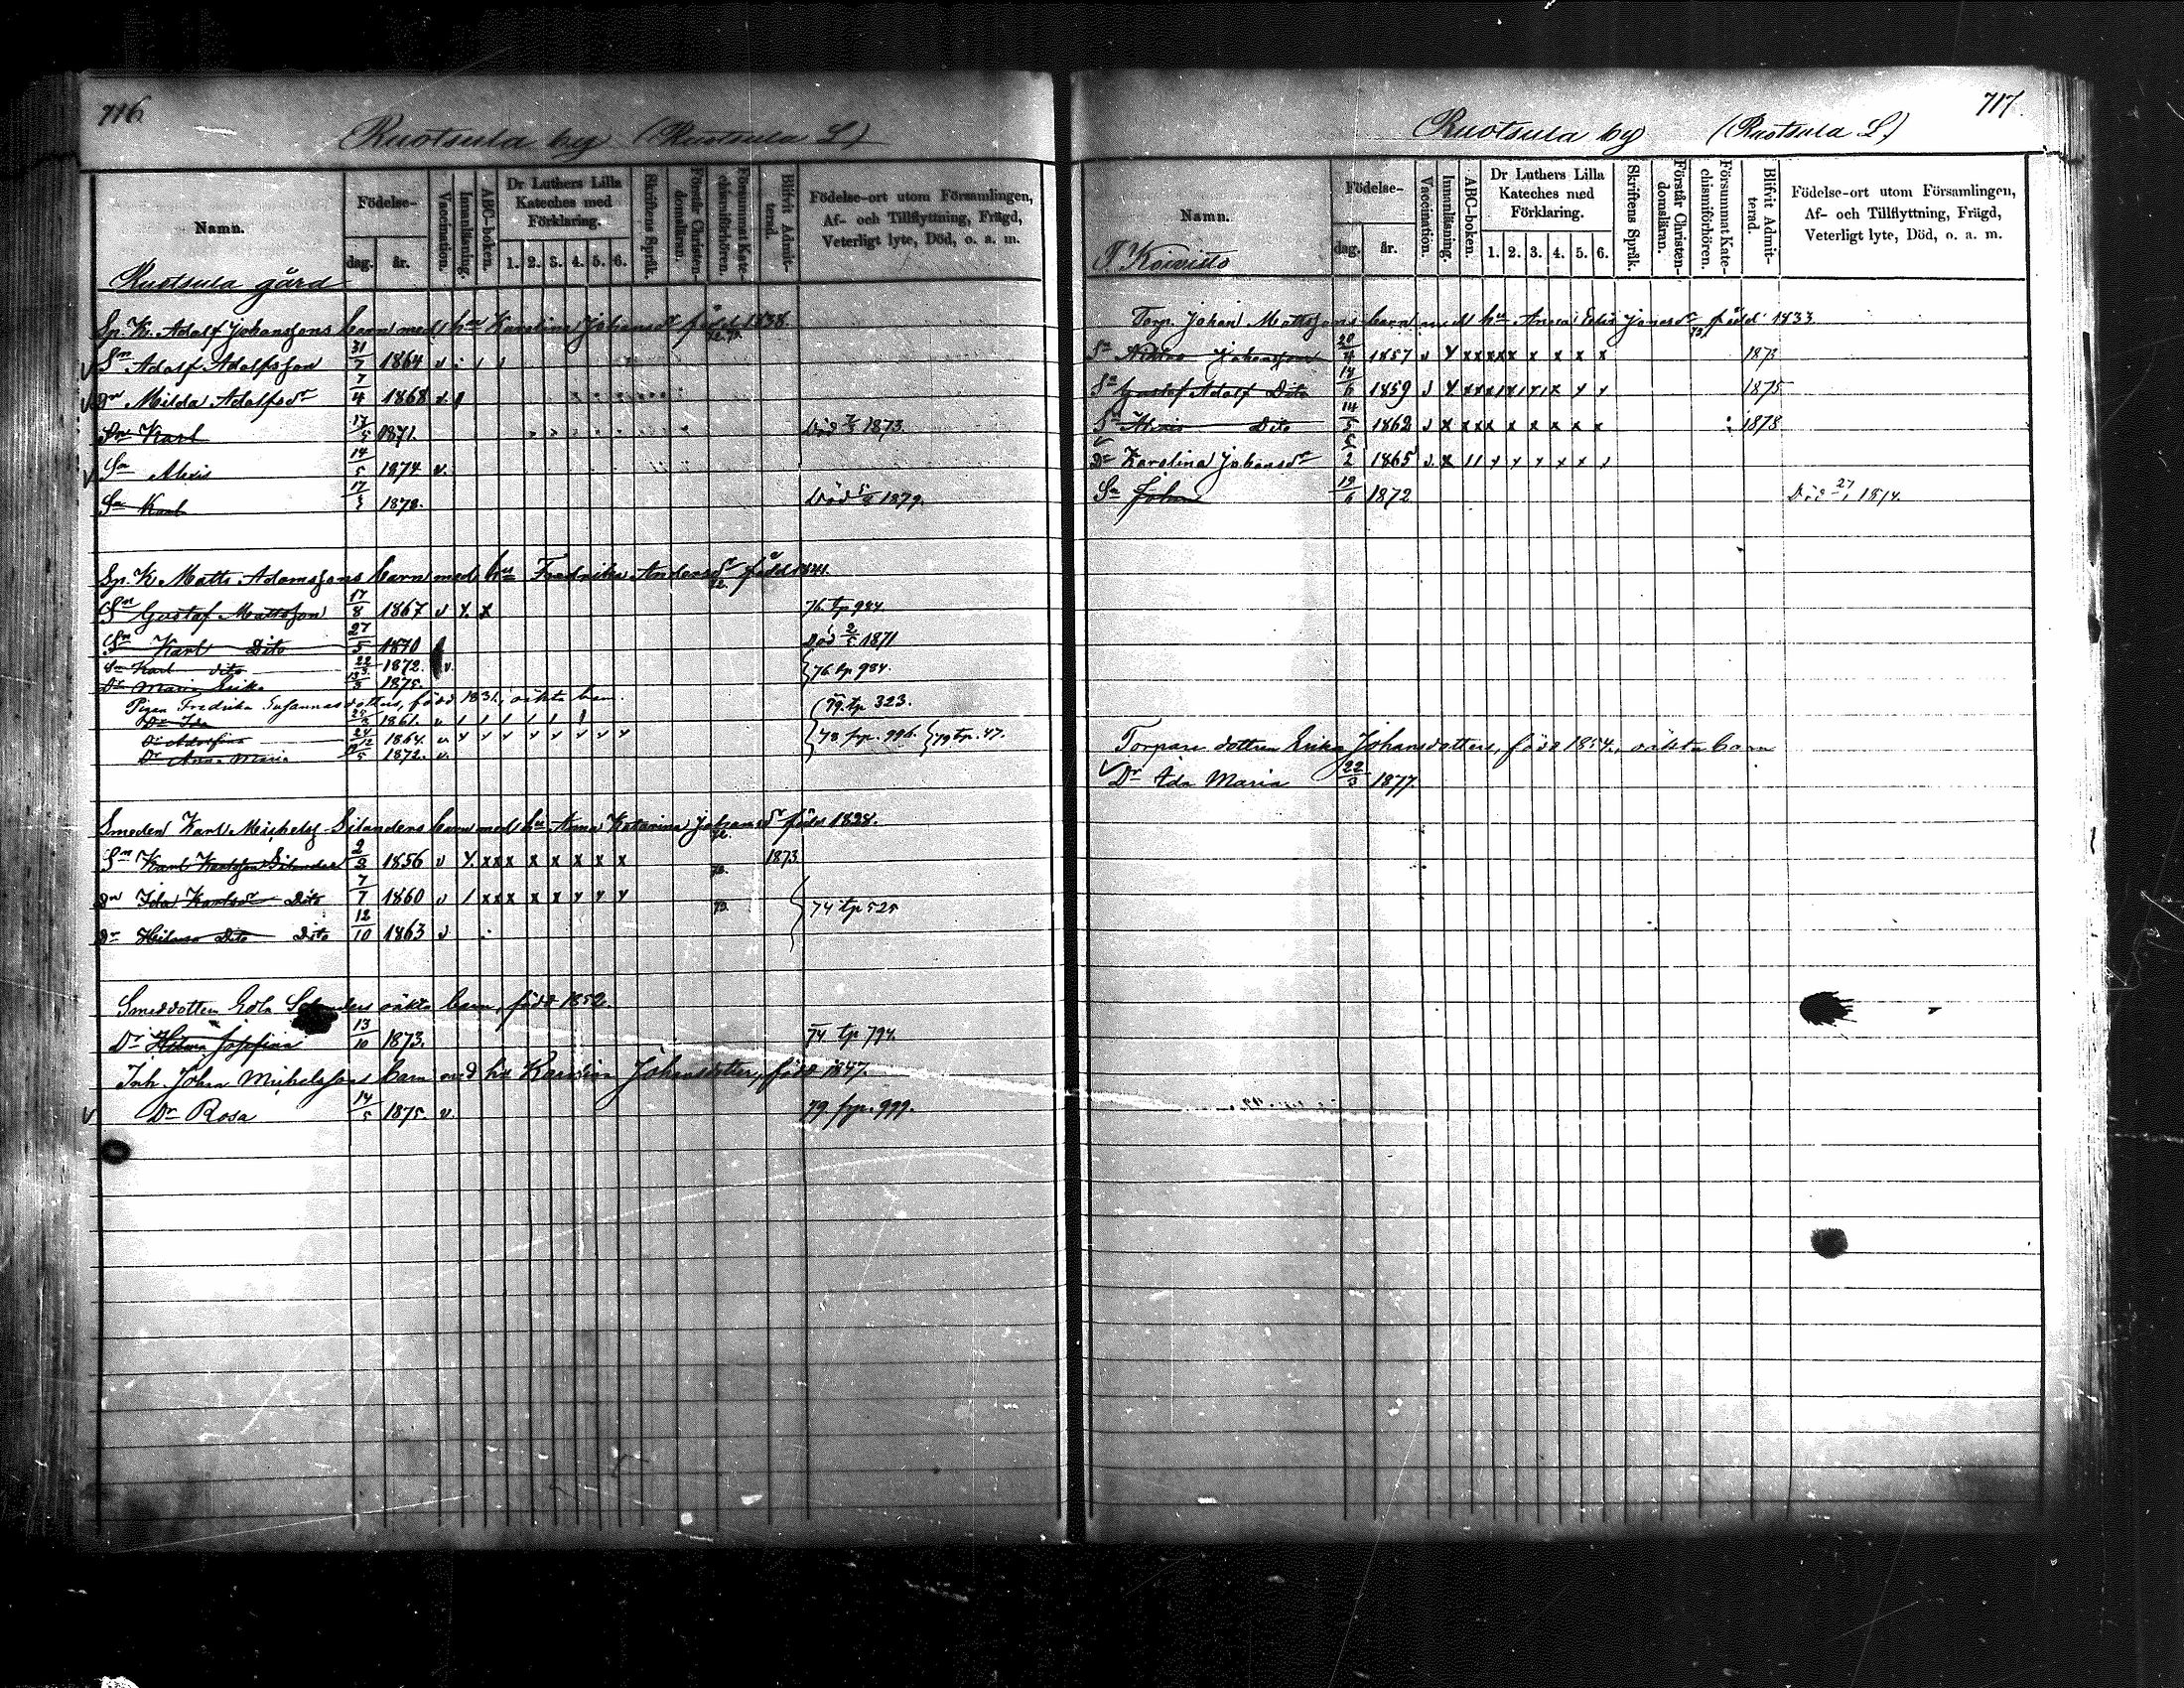 716
Ruotsula by (Ruotsula L)
Namn.
Födelse-
dag.
år.
Vaccination.
Innanläsning.
ABC-boken.
Dr Luthers Lilla Kateches med Förklaring.
1. 2. 3. 4. 5. 6.
Skriftens Språk.
Förstår Christen-domsläran.
Försummat Kate-chismiförhören.
Blifvit Admit-terad.
Födelse-ort utom Församlingen,
Af- och Tillflyttning, Frägd,
Veterligt lyte, Död, o. a. m.
Ruotsula gård
Sp. K. Adolf Johanssons barn med hu Karolina Johansdr född 1838.
v Sn Adolf Adolfsson 31/7 1864 v
v Dr Milda Adolfsdr 7/4 1868 v
Sn Karl 17/5 1871. Död 1873.
v Sn Alexis 14/5 1874 v.
Sn Karl 17/3 1878. Död 1879.
Sp. K. Matts Adamssons barn med hu Fredrika Andersdr född 1841.
Sn Gustaf Mattsson 17/8 1867 v x x 76 tp 984
Sn Karl Dito 27/5 1870 Död 2/5 1871
Sn Karl dito 1872. v. 76 tp 984.
Dr Maria Erika 1875.
Pigan Fredrika Susannasdotters, född 1831, oäkta barn.
Dr Ida 1861. v 79. tp 323.
Dr Adolfina 1864. v 78 frp. 996. 79 tp. 47.
Dr Anna Maria 1872. v.
Smeden Karl Michelss. Silanders barn med hu Anna Katarina Johansdr född 1828.
Sn Karl Karlsson Silander 2/2 1856 v x x x x x x x x x x 1873
Dr Ida Karlsdr Dito 7/7 1860 v / x x x x x x x x 74 tp 525
Dr Dito Dito 12/10 1863 v
Smeddottern oäkta barn, född 1852.
Dr Hilma Josefina 13/10 1873. 74 tp 794.
Inh. Johan Michelssons barn med hu Karolina Johansdotter, född 1847.
v Dr Rosa 14/5 1875. v. 79. frp. 999.
717.
Ruotsula by (Ruotsula L)
Namn.
Födelse-
dag.
år.
Vaccination.
Innanläsning.
ABC-boken.
Dr Luthers Lilla Kateches med Förklaring.
1. 2. 3. 4. 5. 6.
Skriftens Språk.
Förstår Christen-domsläran.
Försummat Kate-chismiförhören.
Blifvit Admit-terad.
Födelse-ort utom Församlingen,
Af- och Tillflyttning, Frägd,
Veterligt lyte, Död, o. a. m.
T. Koivisto
Torp. Johan Mattssons barn med hu Anna Jonasdr född 1833.
Sn Niklas Johansson 20/4 1857 v x x x x x x x x x x 1873
Sn Gustaf Adolf Dito 18/6 1859 v 1875
Sn Alexis Dito 14/5 1862 v x x x x x x x x x 1878
v Dr Karolina Johansdr 5/2 1865 v x
Sn Johan 19/6 1872 Död 27/1 1874.
Torpare dottren Erika Johansdotters, född 1854, oäkta barn
v Dr Ida Maria 22/3 1877.